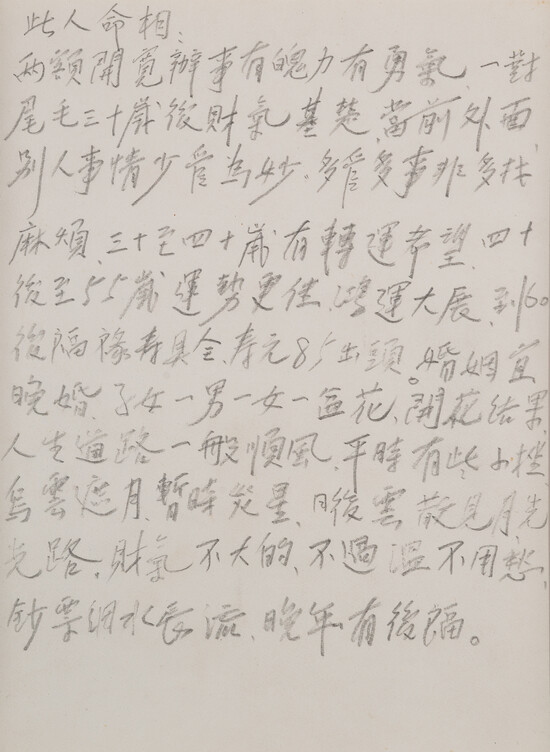 此人命相:
兩額開寬辦事有魄力有勇氣、一對
尾毛三十歲後財氣基楚、當前外面、
別人事情少管為妙、多管多事非多找
麻煩、三十至四十歲有轉運希望、四十
後至55歲運勢更佳、鴻運大展、到60
後福祿寿具全、寿元85出頭。婚姻宜
晚婚、子女一男一女一盆花、開花結果、
人生道路一般順風、平時有些小挫、
烏雲遮月、暫時災星、日後雲散見月光
光路、財氣不大的、不過溫不用愁、
鈔票細水長流、晚年有後福。